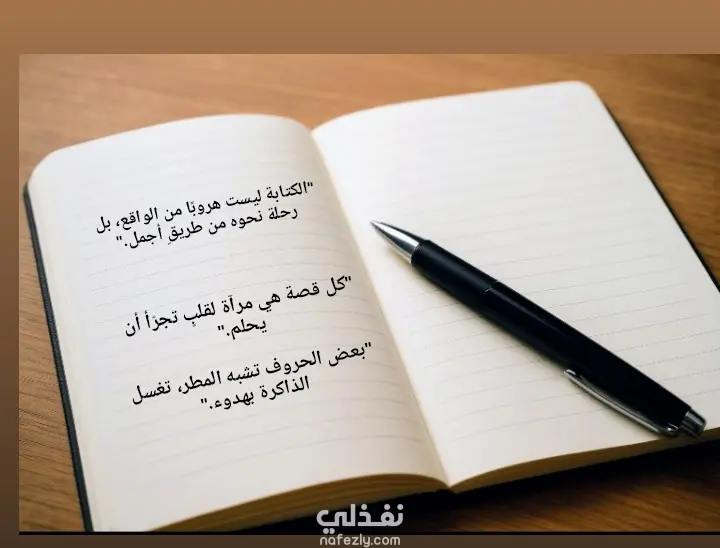 "الكتابة ليست هروبًا من الواقع، بل
رحلة نحوه من طريقٍ أجمل."
"كل قصة هي مرآة لقلبٍ تجرّأ أن
يحلم."
"بعض الحروف تشبه المطر، تغسل
الذاكرة بهدوء."
نفذلي
nafezly.com